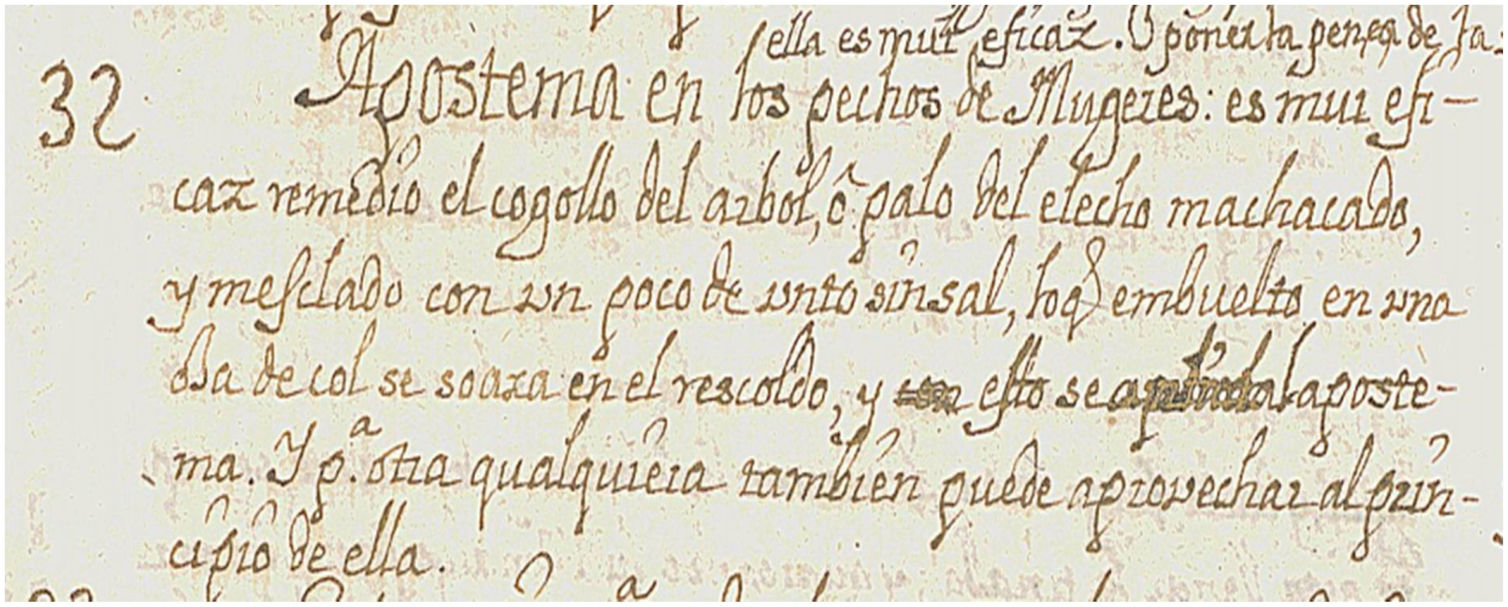 ella es mui eficaz. O poner la penca de ta-
32 Apostema en los pechos de Mugeres: es mui efi-
caz remedio el cogollo del arbol, ô palo del elecho machacado,
y mesclado con vn poco de vnto sin sal, loq̃ embuelto en vna
oja de col se soaza en el rescoldo, y esto se al aposte-
ma. Y p.ª otra qualquiera tambien puede aprovechar al prin-
cipio de ella.